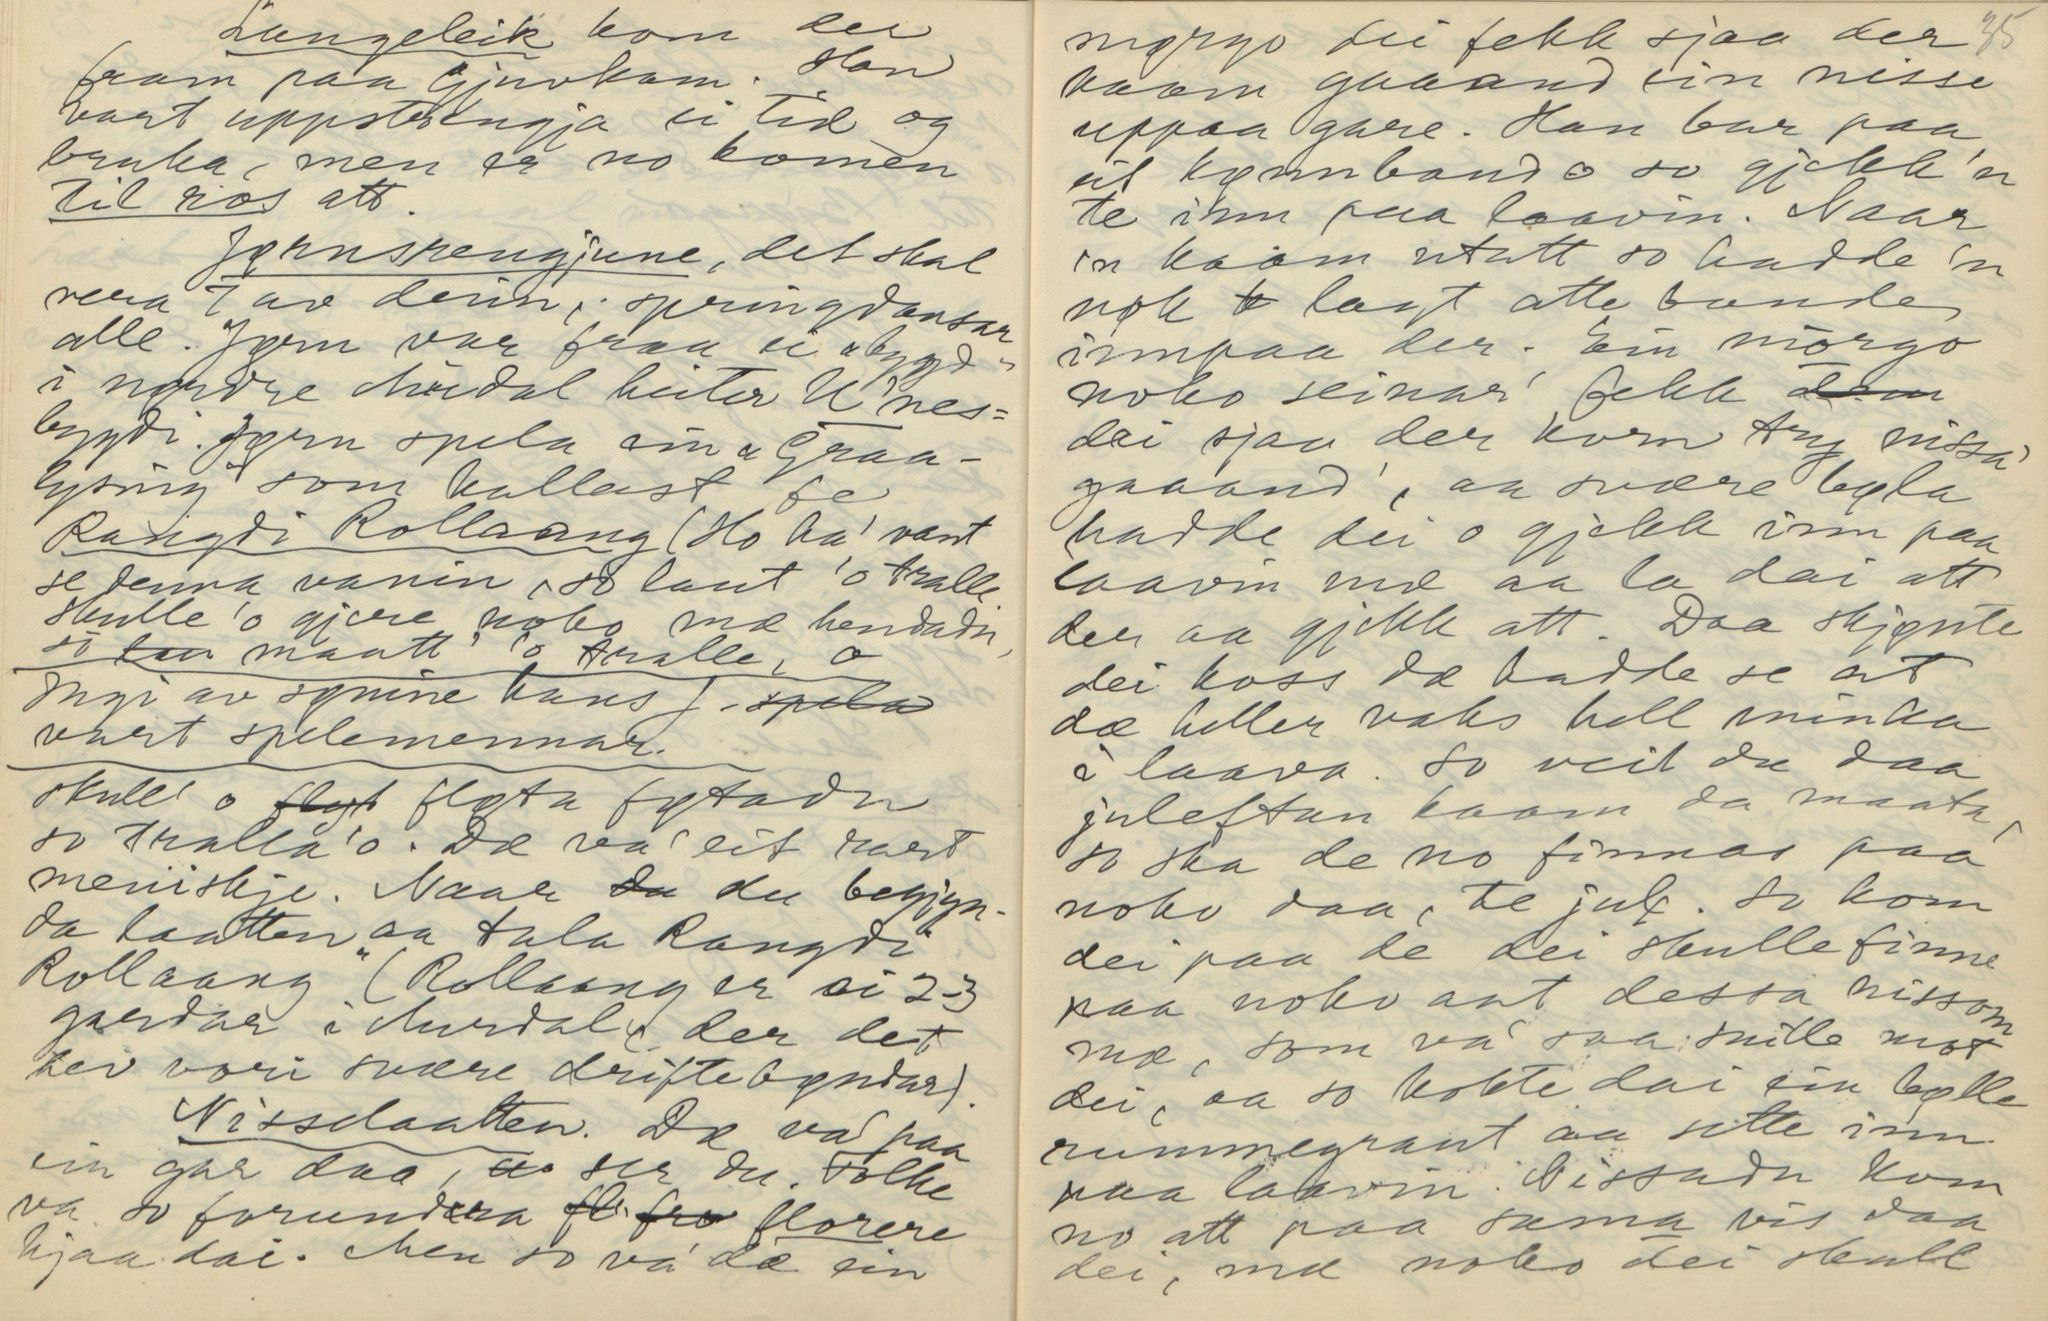 Langeleik kom der
fram paa Gjuvkam. Han
vart uppstrengja ei tid og
bruka, men er no komen
til ros att.
Jørnsrengjune, det skal
vera 7 av deim, springdansar
alle. Jørn var fraa ei "bygd"
i nørdre Aurdal heiter U'nes=
bygdi. Jørn spela ein "Graa-
lysing" som kallast fe
Rangdi Rollaang (Ho ha' vant
se denna vanin, so laut 'o tralle
skulle 'o gjere noko mæ hendadn,
so maatt' 'o tralle, o
Ingi av sønine hans). spela
vart spelemennar.
skull' o fløt fløta føtadn
so tralla 'o. Dæ va' eit rart
meniskje. Naar da du begjyn-
da laatten "aa tala Rangdi
Rollaang" (Rollaang er ei 2-3
gardar i Aurdal, der det
hev vori svære driftebøndar).
Nisselaatten. Dæ va' paa
ein gar daa, ser du. Folke
va so forundra fl. fro florere
hjaa dai. Men so va' dæ ein
35
mørgo dei fekk sjaa der
kaam gaaand ein nisse
uppaa gare. Han bar paa
eit kønnband o so gjekk 'n
te inn paa laavin. Naar
'n kaam utatt so hadde 'n
nok lagt atte bande
innpaa der. Ein mørgo
noko seinar' fekk dem
dai sjaa der kom try nissa'
gaaand', aa svære bøla
hadde dei o gjekk inn paa
laavin mæ aa la dai att
der aa gjekk att. Daa skjønte
dei koss dæ hadde se at
dæ heller vaks hell minka
i laava. So veit du daa
juleftan kaam da maata,
so ska de no finnas paa
noko daa, te jul. So kom
dei paa de dei skulle finne
paa noko aat dessa nissom
mæ, som va' saa snille mot
dei, aa so kokte dai ein bølle
rummegraut aa sette inn
paa laavin. Nissadn kom
no att paa sama vis daa
dei, mæ noko dei skull